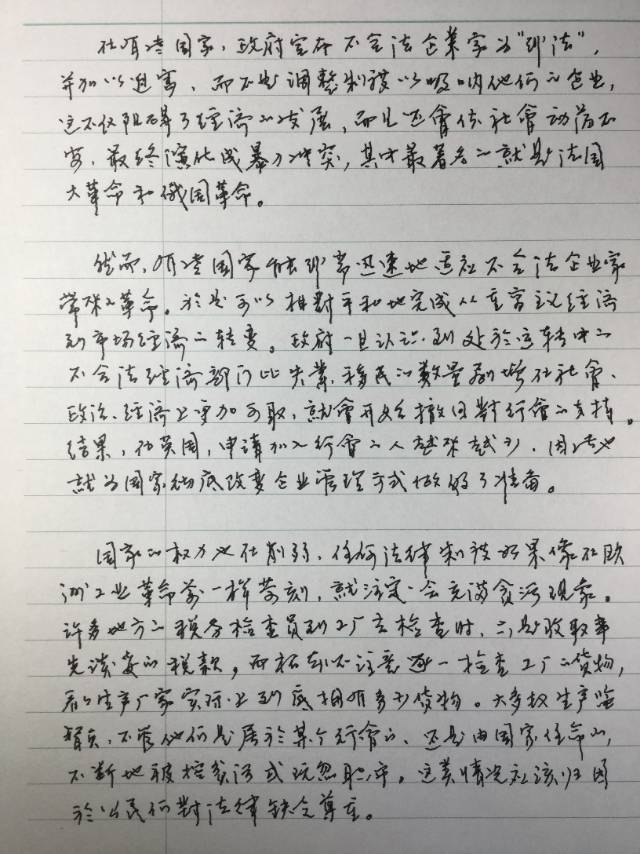 在有些国家，政府宣布不合法企業家为"非法"，
并加以迫害，而不是调整制度以吸纳他们的企业，
这不仅阻碍了经济的发展，而且还會使社會动荡不
安，最终演化成暴力冲突，其中最著名的就是法国
大革命和俄国革命。
然而，有些国家能非常迅速地适应不合法企业家
带来的革命。於是可以相對平和地完成从重商主义经济
到市场经济的转变。政府一旦认识到处於运转中的
不合法经济部门比失業、移民的数量剧增在社會、
政治、经济上更加可取，就會开始撤回對行會的支持。
结果，在英国，申请加入行會的人越来越少，因此也
就为国家彻底改变企业管理方式做好了准备。
国家的权力也在削弱。任何法律制度如果像在欧
洲工业革命前一样苛刻，就注定會充满贪污现象。
许多地方的税务检查员到工厂去检查时，只是收取事
先谈妥的税款，而根本不注意逐一检查工厂的货物，
看看生产厂家实际上到底拥有多少货物。大多数生产监
督员，不管他们是属於某个行會的，还是由国家任命的，
不断地被控贪污或玩忽职守，这类情况应该归因
於公民们對法律缺乏尊重。